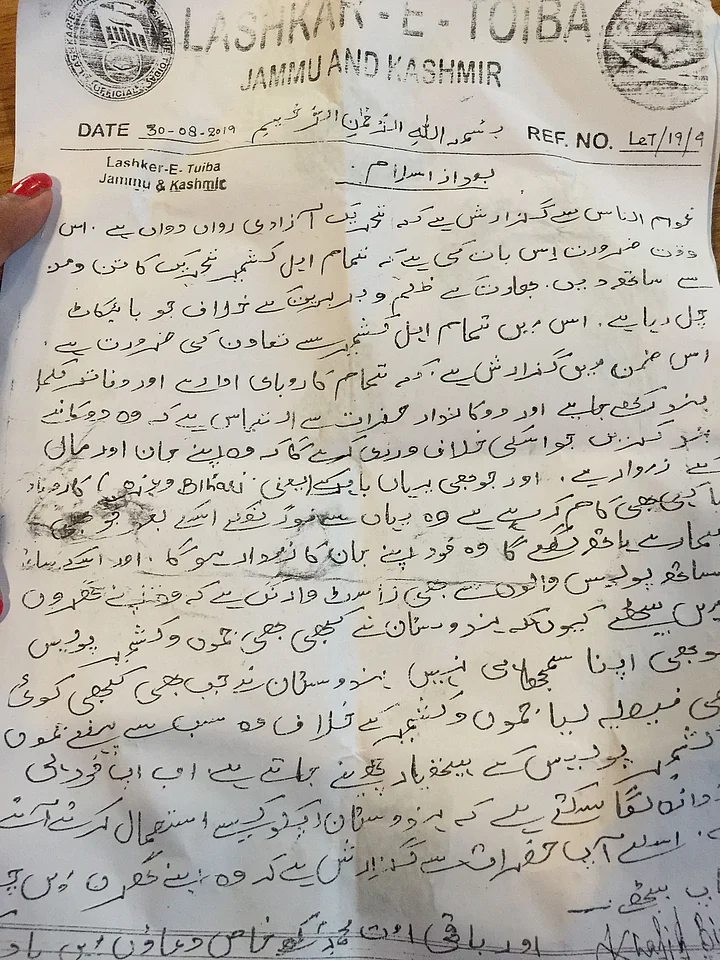 LASHKAR - E - TOIBA
JAMMU AND KASHMIR
DATE 30-08-2019 بسم اللہ الرّحمٰن الرّحیم REF. NO. LeT/19/9
Lashker-E-Tuiba
Jammu & Kashmir
بعداز اسلام
عوام الناس سے گزارش ہے کہ تحریک آزادی رواں دواں ہے . اس
وقت ضرورت اِس بات کی ہے کہ تمام اہل کشمیر تحریک کا تن
سے ساتھ دیں . بھارت کے ظلم و بربریت کے خلاف جو بائیکاٹ
چل رہا ہے . اس میں تمام اہل کشمیر سے تعاون کی ضرورت ہے .
اس ضمن میں گزارش ہے کہ تمام کاروباری ادارے اور دفاتر
بند رکھے جائے اور دوکاندار حضرات سے التماس ہے کہ وہ دوکانے
بند کریں جو اسکی خلاف ورزی کرے گا کہ وہ اپنے جان اور مال
کے زروار ہے . اور جو بھی یہاں باہر کے (یعنی Bihari وغیرہ)
کام کر رہے ہے وہ یہاں سے اسکے بعد جو بھی
ہمارے ہاتھ لگے گا وہ خود اپنے جان کا زروار ہو گا . اور اسکے
ساتھ پولیس والوں سے بھی گزارش ہے کہ وہ اپنے گھروں
میں بیٹھے کیونکہ ہندوستان نے کبھی بھی جموں و کشمیر پولیس
کو بھی اپنا سمجھا ہی نہیں ہندوستان نے جب بھی کبھی کوئی
بھی فیصلہ لیا جموں و کشمیر کے خلاف وہ سب سے پہلے جموں
کشمیر پولیس سے ہتھیار چھینے جاتے ہے اب آپ خود ہی
اندازہ لگا سکتے ہے کہ ہندوستان آپکو کیسے استعمال کرتے آئے
اسلے آپ حضرات سے گزارش ہے کہ وہ اپنے گھروں میں
بیٹھے
اور باقی امت محمدؐ کو خاص دعاؤں میں یاد